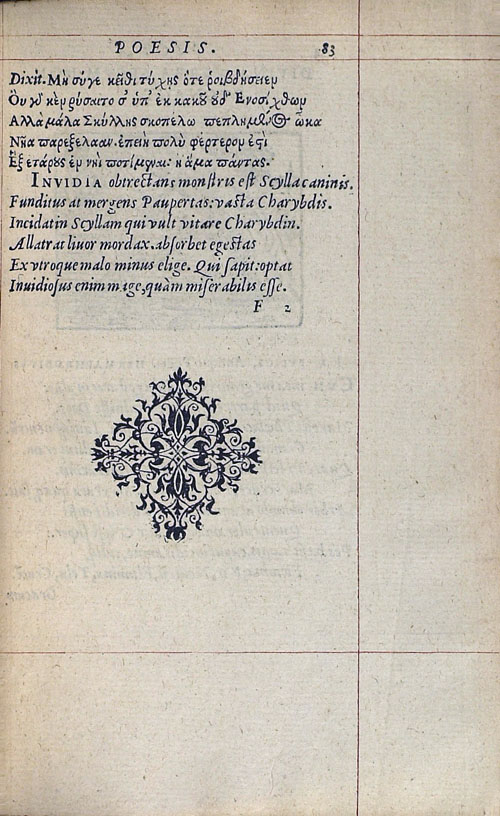 POESIS. 83
Dixit. Μὴ σύγε κεῖθι τύχης ὅτε ῥοιβδήσειεν
Οὐ γὰρ κὲν ῥύσαιτο σ' ὑπ' ἐκ κακοῦ οὐδ' Ενοσίχθων
Αλλὰ μάλα Σκύλλης σκοπέλω πεπλημένος ὦκα
Νῆα παρεξελάαν. ἐπειὴ πολὺ φέρτερον ἐςὶ
Ἓξ ἑτάρους ἐν νηὶ ποτίμηναι: ἢ ἅμα πάντας.
INVIDIA obtrectans monstris est Scylla caninis.
Funditus at mergens Paupertas: vasta Charybdis.
Incidat in Scyllam qui vult vitare Charybdin.
Allatrat livor mordax. absorbet egestas
Ex vtroque malo minus elige. Qui sapit: optat
Inuidiosus enim m ge, quàm miserabilis esse.
F 2